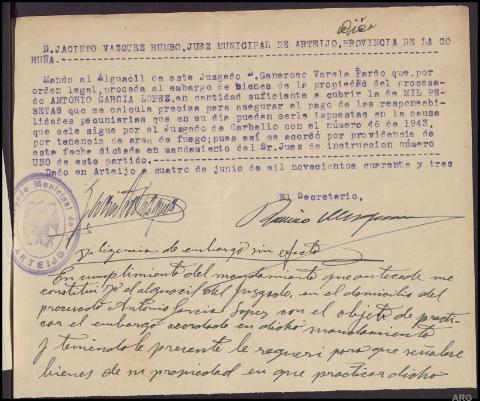 Dico
D.JACINTO VAZQUEZ RUMBO,JUEZ MUNICIPAL DE ARTEIJO,PROVINCIA DE LA CO
RUÑA.
Mando al Alguacil de este Juzgado D.Generoso Varela Pardo que,por
orden legal,proceda al embargo de bienes de la propiedad del procesa-
do ANTONIO GARCIA LOPEZ,en cantidad suficiente a cubrir la de MIL PE-
SETAS que se calcula precisa para asegurar el pago de las responsabi-
lidades pecuniarias que en su dia puedan serle impuestas en la causa
que sele sigue por el Juzgado de Carballo con el número 46 de 1943,
por tenencia de arma de fuego;pues asi se acordó por providencia de
esta fecha dictada en mandamiento del Sr.Juez de instrucción número
UNO de este partido.
Dado en Arteijo a cuatro de junio de mil novecientos cuarenta y tres
El Secretario,
Municipal de
ARTEIJO
Diligencia de embargo sin efecto
En cumplimiento del mandamiento que antecede me
constituí yo el alguacil del Juzgado, en el domicilio del
procesado Antonio Garcia Lopez con el objeto de practi-
car el embargo acordado en dicho mandamiento
y teniendole presente le requeri para que señalase
bienes de su propiedad en que practicar dicho
ARG